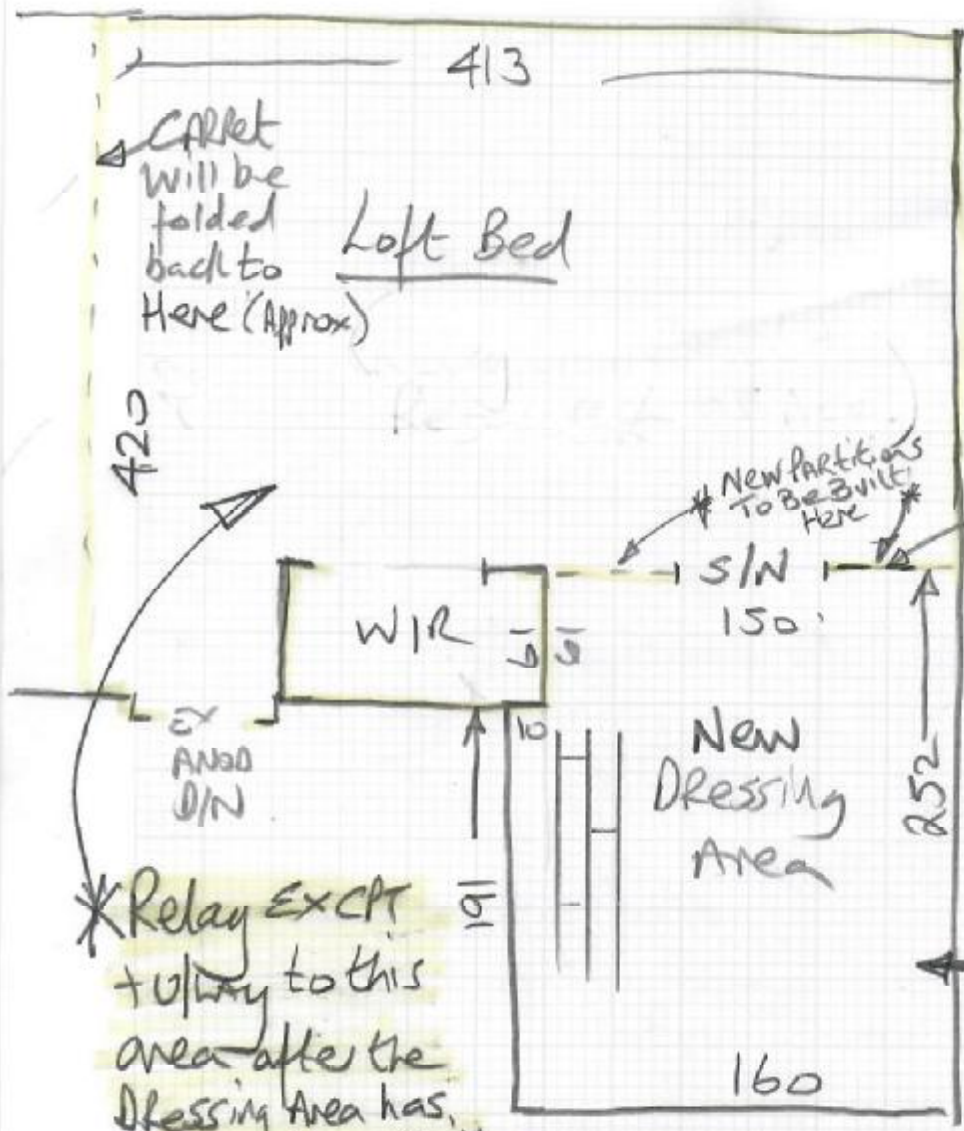 413
CARPet
will be
folded
back to
Here (Approx)
Loft Bed
420
New PARtitions
To Be Built
Here
S/N
150
W/R
61
61
10
EX
ANOD
D/N
New
DRessing
Area
252
191
Relay EXCPT
+ U/LAY to this
area after the
DRessing Area has
160